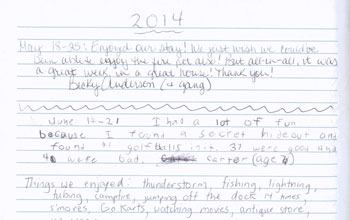 2014
May 18-25: Enjoyed our stay! We just wish we could've
been able to enjoy the fire pit also! But all-in-all, it was
a great week in a great house! Thank you!
Becky Anderson (+ gang)
June 14-21 I had a lot of fun
because I found a secret hideout and
found 41 golf balls in it. 37 were good and
4 were bad. carter (age 7)
Things we enjoyed: thunderstorm, fishing, lightning,
tubing, campfire, jumping off the dock times,
s'mores, Go Karts, watching moves, antique store,